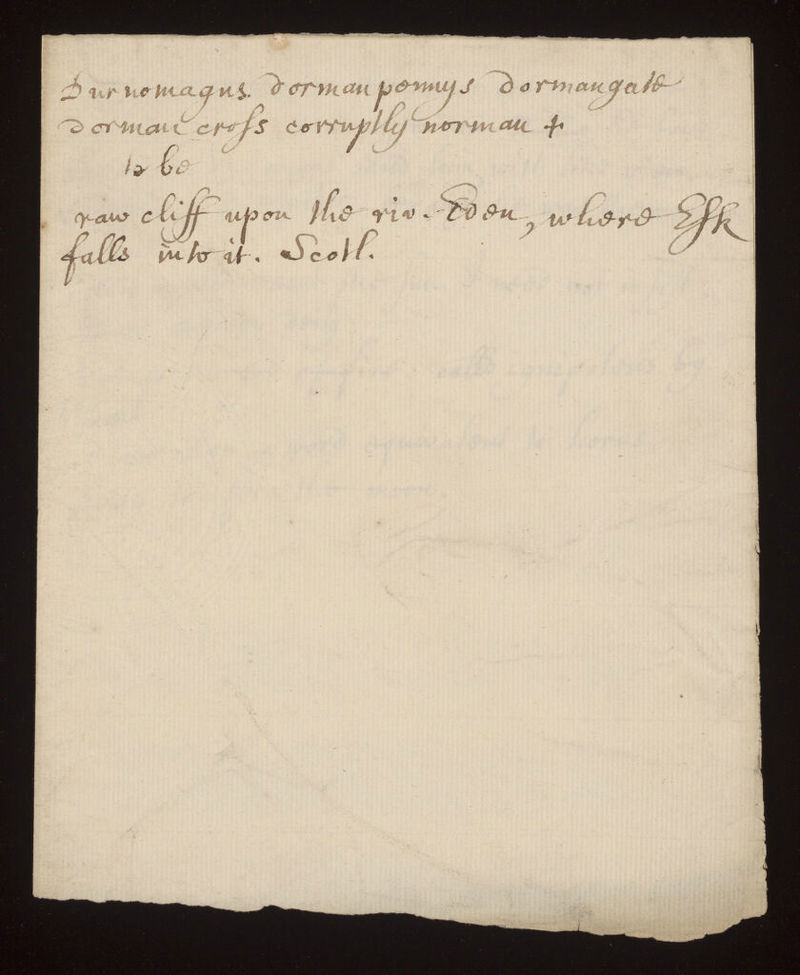 Durnomagus. dormanpennys dormangate
dorman cross corruptly norman +
to be
raw cliff upon the riv. Eden, where Esk
falls into it. Scotl.